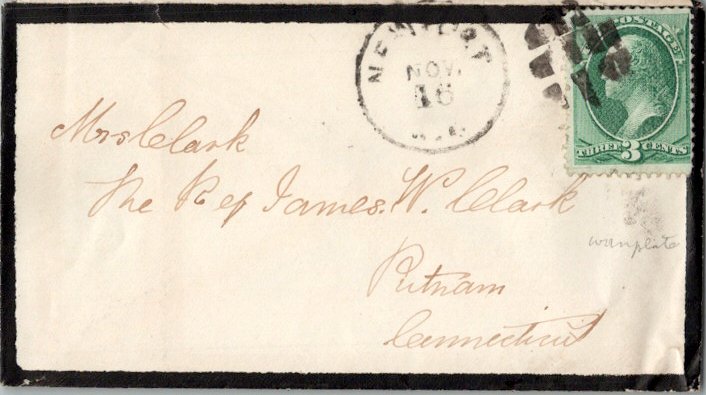 NEWPORT
NOV.
16
R.I.
POSTAGE
THREE 3 CENTS
Mrs Clark
The Rev James. W. Clark
Putnam
Connecticut